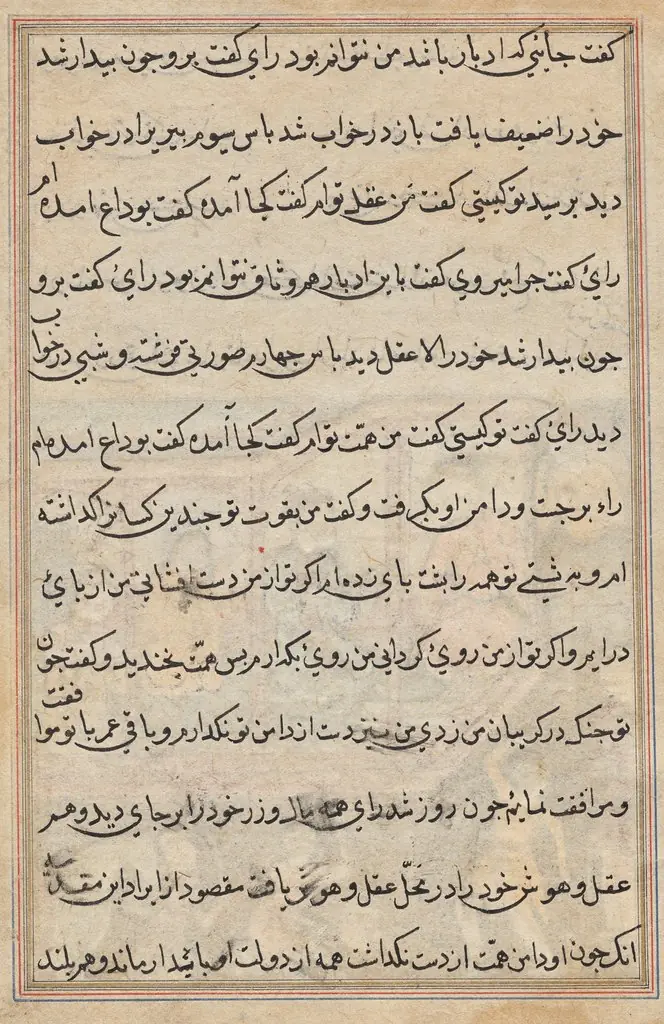 کفت جائی که ادبار باشد من نتوانم بود رای کفت برو جون بیدار شد
خود را ضعیف یافت باز در خواب شد باس سیوم بیریرا در خواب
دید برسید تو کیستی کفت من عقل توام کفت کجا آمدهٔ کفت بوداع امده ام
رایٔ کفت جرا میروی کفت با این ادبار هم وثاق نتوانم بود رایٔ کفت برو
جون بیدار شد خود را لا عقل دید باس جهارم صورتی فرشته وشی در خواب
دید رایٔ کفت تو کیستی کفت من همّت توام کفت کجا آمدهٔ کفت بوداع امده ام
راء برجست و دامن او بکرفت و کفت من بقوت تو جندین کسانرا کداشته
ام و به بشتی تو همه را بشت بای زده ام اکر تو از من دست افشانی من از بایٔ
درایم و اکر تو از من رویٔ کردانی من رویٔ بکدارم بس همّت بخندید و کفت جون
تو جنک در کریبان من زدی من نیز دست از دامن تو نکدارم و باقی عمر با تو موافقت
و مرافقت نمایٔم جون روز شد رای همه مال و زر خود را بر جای دید و هم
عقل و هوش خود را در محلّ عقل و هوش یافت مقصود از ایراد این مقدّمه
انک جون او دامن همّت از دست نکداشت همه از دولت او بائیدار ماند و هم بلند